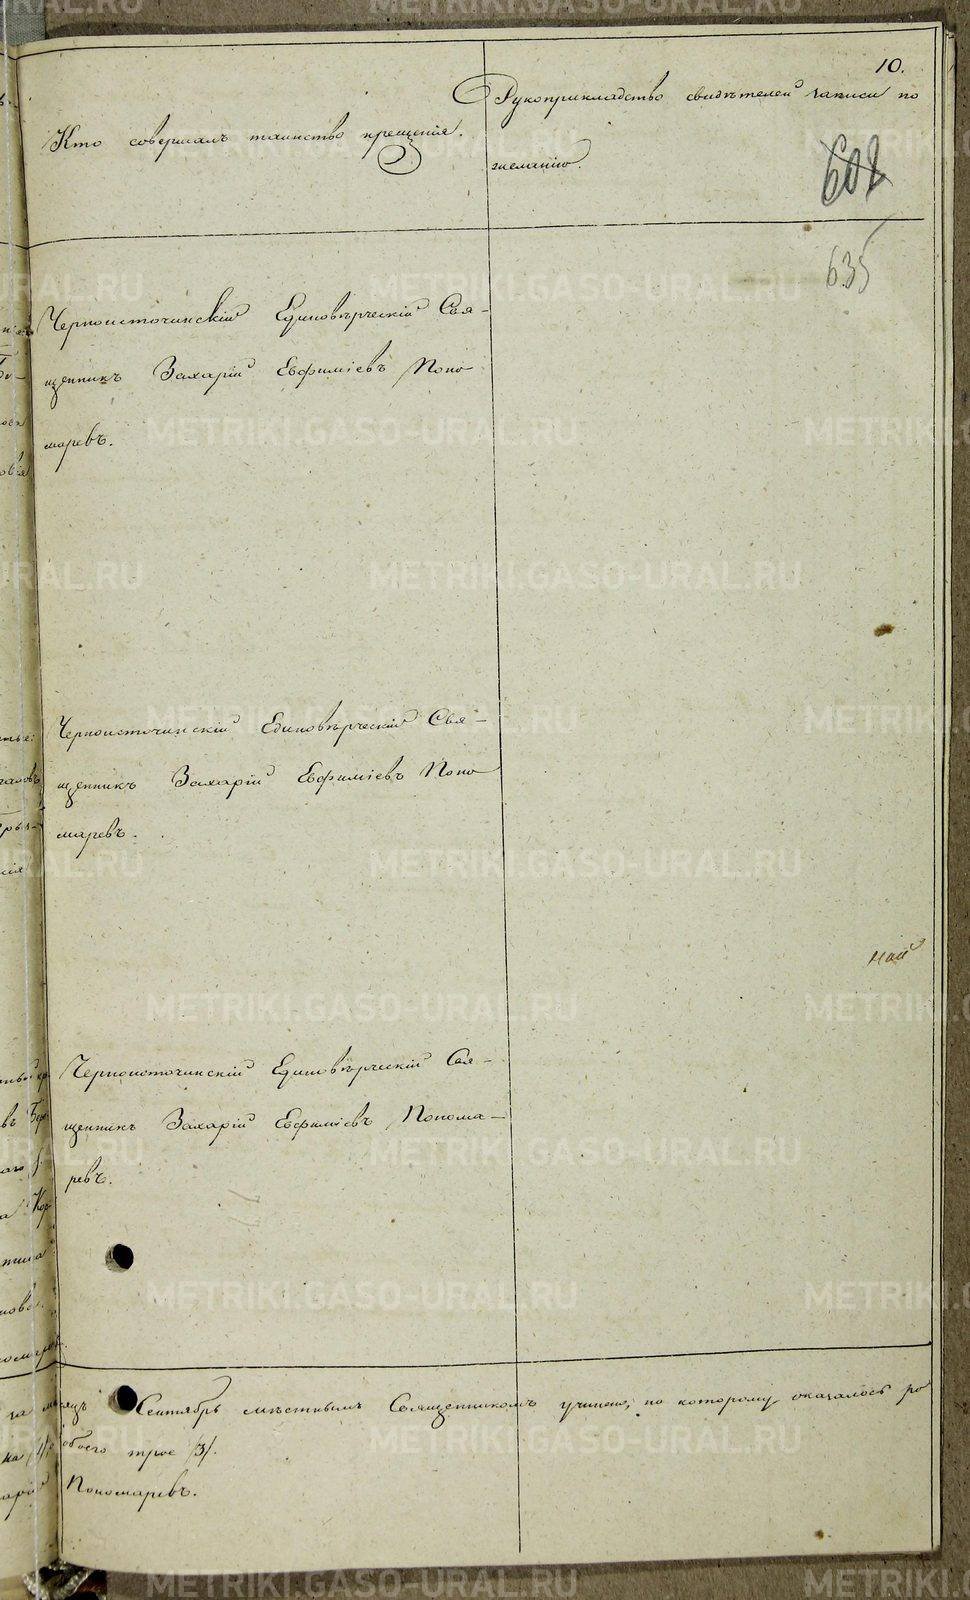 10.
Кто совершалъ таинство крещенія.
Рукоприкладство свидѣтелей записи по
желанію.
608
635
Черноисточинскій Единовѣрческій Свя-
щенникъ Захарій Евфиміевъ Поно
маревъ.
Черноисточинскій Единовѣрческій Свя-
щенникъ Захарій Евфиміевъ Поно
маревъ.
Черноисточинскій Единовѣрческій Свя-
щенникъ Захарій Евфиміевъ Понома-
ревъ.
за мѣсяцъ Сентябрь мѣстнымъ Священникомъ учинено, по которому оказалось ро
обоего трое /3/.
Пономаревъ.
METRIKI.GASO-URAL.RU